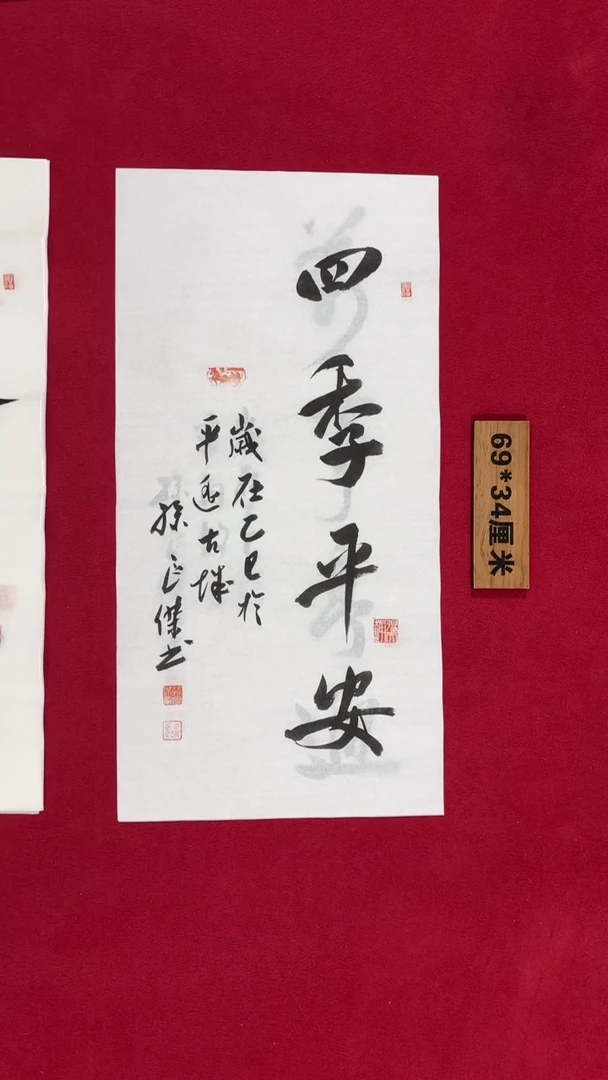 四季平安
歲在乙巳於
平遙古城
孫正傑書
69*34厘米